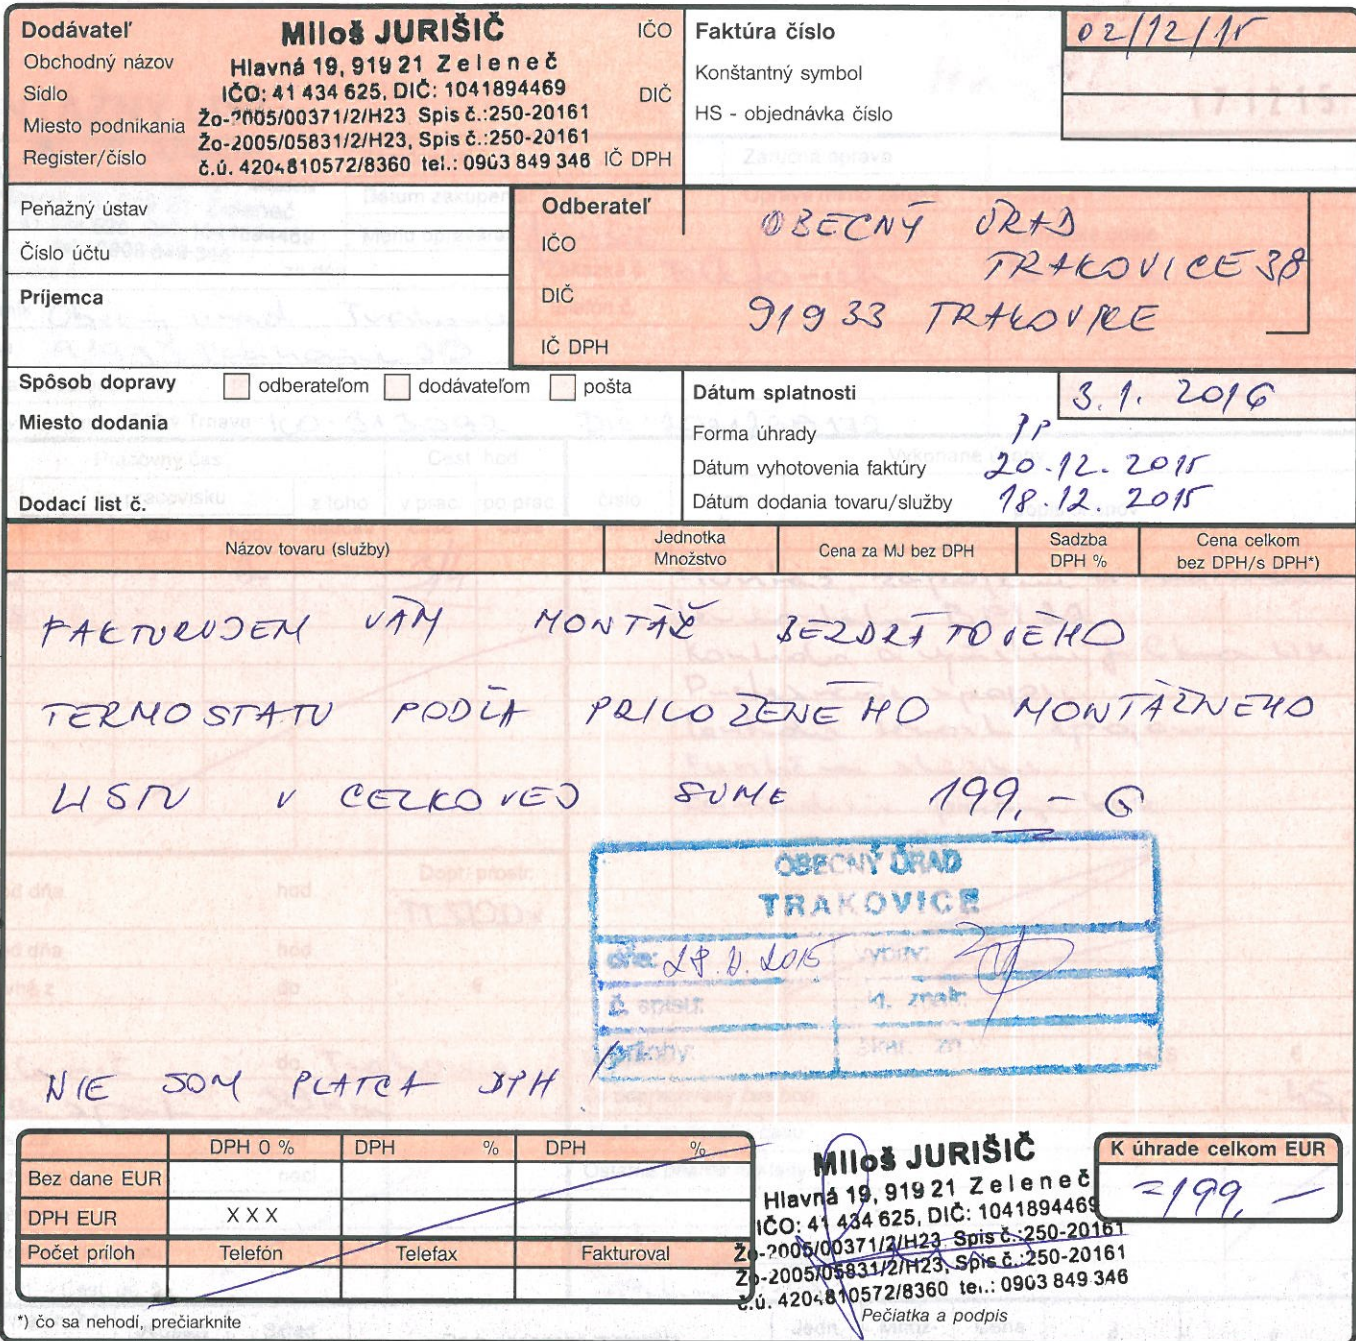 Dodávateľ
Miloš JURIŠIČ
IČO
Obchodný názov
Hlavná 19, 919 21 Zeleneč
Sídlo
IČO: 41 434 625, DIČ: 1041894469
DIČ
Miesto podnikania
Žo-2005/00371/2/H23 Spis č.:250-20161
Žo-2005/05831/2/H23, Spis č.:250-20161
Register/číslo
č.ú. 4204810572/8360 tel.: 0903 849 346
IČ DPH
Faktúra číslo 02/12/15
Konštantný symbol
HS - objednávka číslo
Peňažný ústav
Číslo účtu
Príjemca
Odberateľ
OBECNÝ ÚRAD
IČO
TRAKOVICE 38
DIČ
919 33 TRAKOVICE
IČ DPH
Spôsob dopravy odberateľom dodávateľom pošta
Miesto dodania
Dodací list č.
Dátum splatnosti 3.1. 2016
Forma úhrady PP
Dátum vyhotovenia faktúry 20.12. 2015
Dátum dodania tovaru/služby 18.12. 2015
Názov tovaru (služby)
Jednotka
Množstvo
Cena za MJ bez DPH
Sadzba
DPH %
Cena celkom
bez DPH/s DPH*)
FAKTURUJEM VÁM MONTÁŽ BEZDRÁTOVÉHO
TERMOSTATU PODĽA PRILOŽENÉHO MONTÁŽNEHO
LISTU V CELKOVEJ SUME 199,- €
OBECNÝ ÚRAD
TRAKOVICE
dňa:
2015
vybav:
č. spisu:
prílohy:
NIE SOM PLATCA DPH !
DPH 0 % DPH % DPH %
Bez dane EUR
DPH EUR X X X
Počet príloh Telefón Telefax Fakturoval
*) čo sa nehodí, prečiarknite
Miloš JURIŠIČ
Hlavná 19, 919 21 Zeleneč
IČO: 41 434 625, DIČ: 1041894469
Žo-2005/00371/2/H23 Spis č.:250-20161
Žo-2005/05831/2/H23, Spis č.:250-20161
č.ú. 4204810572/8360 tel.: 0903 849 346
Pečiatka a podpis
K úhrade celkom EUR
=199,-